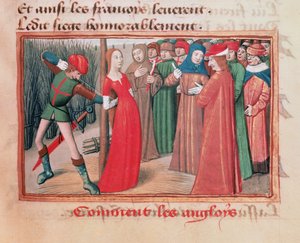 Et ainsi les francois leuerent
Ledit siege honnorablement.
Comment les anglois